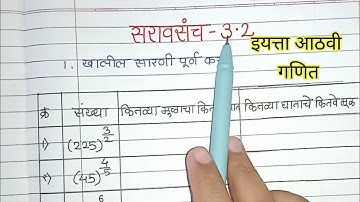 सरावसंच - 3.2
इयत्ता आठवी
गणित
1. खालील सारणी पूर्ण
क्र संख्या कितव्या मुळाचा कितवा घात कितव्या घाताचे कितवे मूळ
१) (225)^3/2
२) (45)^4/5
6